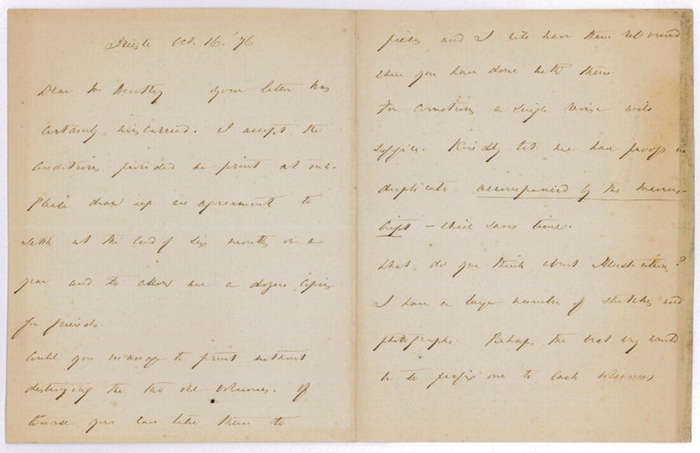 Trieste Oct. 16. '76
Dear Mr Bentley your letter has
certainly miscarried. I accept the
conditions provided we print at once.
Please draw up an agreement to
settle at the end of six months or a
year and to allow me a dozen copies
for friends.
Could you manage to print without
destroying the two old volumes. If
course you can take them to
pieces and I will have them rebound
when you have done with them.
For corrections a single revise will
suffice. Kindly let me have proofs in
duplicate accompanied by the manus-
cript – which saves time.
What do you think about Illustrations?
I have a large number of sketches and
photographs. Perhaps the best way would
be to prefix one to each